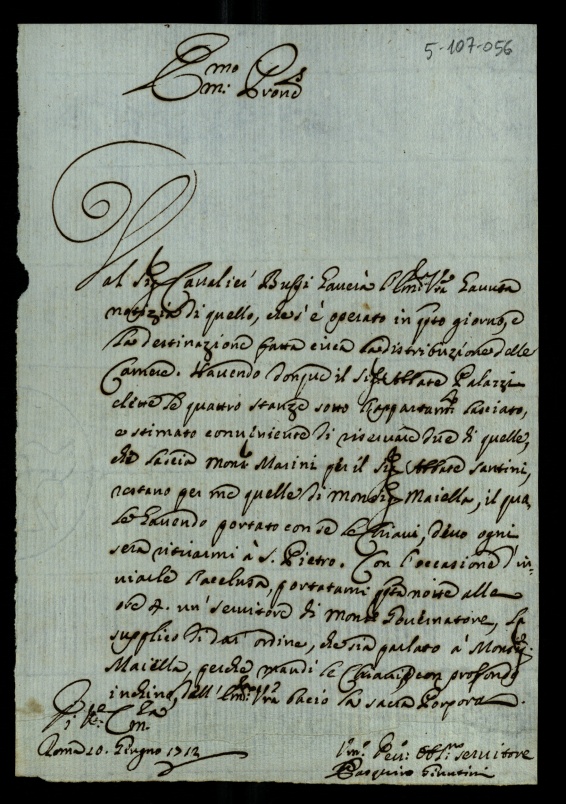 5-107-056
Em.mo
Em: Prone
al Sig. Cavalieri Bussi haverà l'Em. Vra havuta
notizia di quello, che s'è operato in qto giorno, e
la destinazione fatta circa la distribuzione delle
Camere. Havendo donque il Sig. Abbate Palazzi
elette le quattro stanze sotto l'appartam. lasciato,
e stimato conveniente di riservare due di quelle,
che lascia Mons. Marini per il Sig. Abbate Santini,
restano per me quelle di Monsig. Maiella, il qua-
le havendo portato con se le Chiavi, devo ogni
sera ritirarmi à S. Pietro. Con l'occasione d'in-
viarle l'acclusa, portatami qta notte alle
ore 4. un' servitore di Mons. Governatore, La
supplico di dar' ordine, che sia parlato à Monsig.
Maiella, perche mandi le Chiavi, e con profondo
inchino dell' Em. Vra bacio la sacra Porpora.
Di V. Em.
Roma 10. Giugno 1712
Um. Dev. Obl. servitore
Pasquino Giuntini